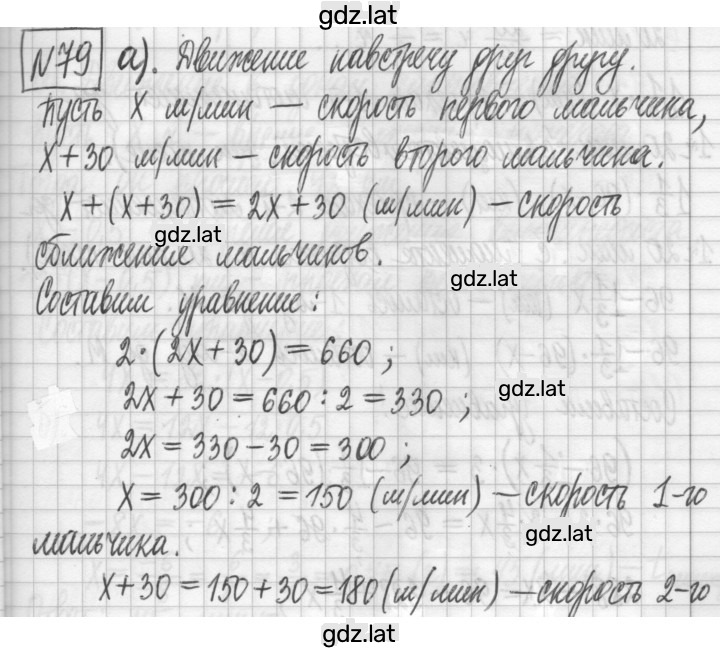 gdz.lat
N79 а). Движение навстречу друг другу.
Пусть X м/мин — скорость первого мальчика,
X+30 м/мин — скорость второго мальчика.
X+(X+30) = 2X+30 (м/мин) — скорость
gdz.lat
сближение мальчиков.
gdz.lat
Составим уравнение:
2·(2X+30) = 660 ;
gdz.lat
2X+30 = 660 : 2 = 330 ;
2X = 330 – 30 = 300 ;
X = 300 : 2 = 150 (м/мин) — скорость 1-го
gdz.lat
мальчика.
X+30 = 150+30 = 180 (м/мин) — скорость 2-го
gdz.lat